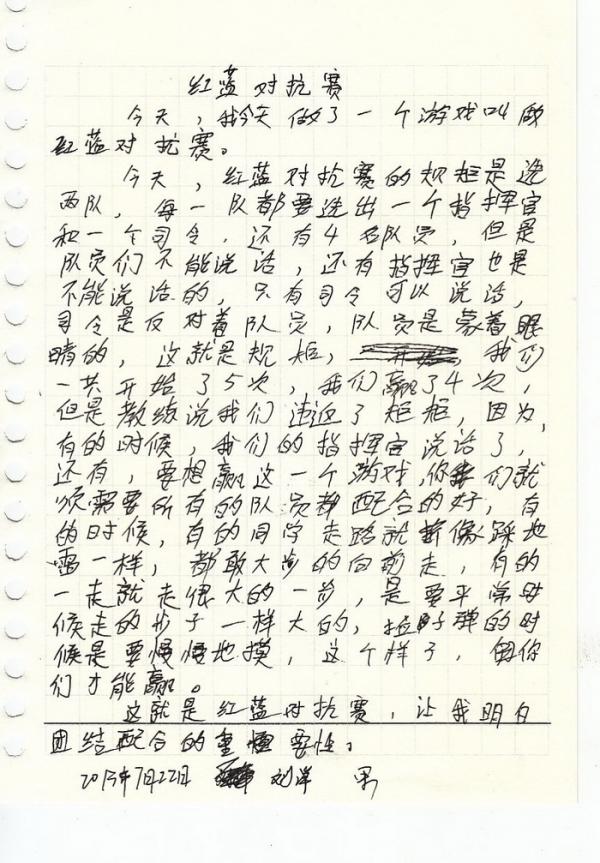 红蓝对抗赛
今天，我今天做了一个游戏叫做
红蓝对抗赛。
今天，红蓝对抗赛的规柜是选
两队，每一队都要选出一个指挥官
和一个司令，还有4名队员，但是
队员们不能说话，还有指挥官也是
不能说话的，只有司令可以说话，
司令是反对着队员，队员是蒙着眼
睛的，这就是规柜，我们
一共开始了5次，我们赢了4次，
但是教练说我们违近了柜柜，因为，
有的时候，我们的指挥官说话了，
还有，要想赢这一个游戏，你们就
须需要所有的队员都配合的好，有
的时候，有的同学走路就像踩地
雷一样，都敢大步的向前走，有的
一走就走很大的一步，是要平常时
候走的步子一样大的，的时
候是要慢慢地摸，这个样子，你
们才能赢。
这就是红蓝对抗赛，让我明白
团结配合的重要性。
2013年7月22日 刘洋